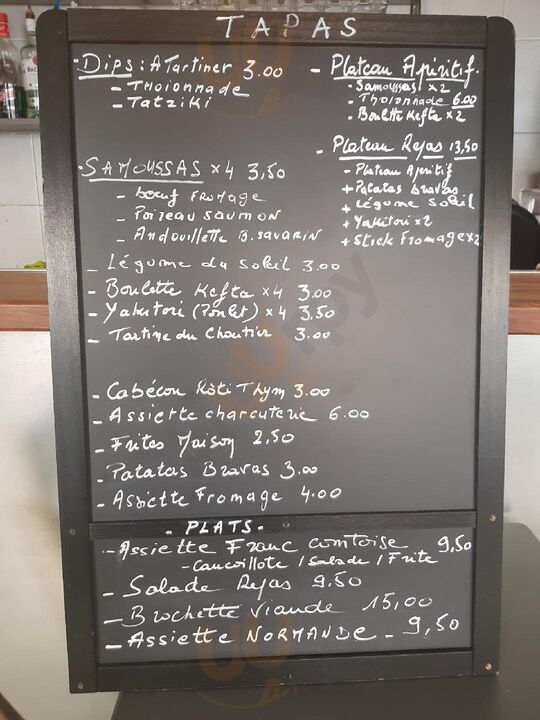 TAPAS
- Dips : A Tartiner 3.00
- Thoionnade
- Tatziki
- SAMOUSSAS x4 3,50
- boeuf FROMAGE
- Poireau SAUMON
- Andouillette B.SAVARIN
- Légume du Soleil 3.00
- Boulette Kefta x4 3.00
- Yakitori (Poulet) x4 3,50
- Tartine du Choutier 3.00
- Cabécou Rôti Thym 3.00
- Assiette charcuterie 6.00
- Frites Maison 2,50
- Patatas Bravas 3.00
- Assiette Fromage 4.00
- Plateau Apéritif.
- Samoussas x2
- Thoionnade 6.00
- Boulette Kefta x2
- Plateau Rejas 13,50
- Plateau Apéritif
+ Patatas bravas
+ Légume Soleil
+ Yakitori x2
+ Stick Fromage x2
- PLATS -
- Assiette Franc comtoise 9,50
- Cancoillote / Salade / Frite
- Salade Rejas 9.50
- Brochette viande 15,00
- Assiette NORMANDE - 9,50